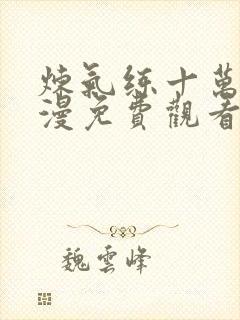 煉氣練十萬
漫免費觀看
魏雲峰